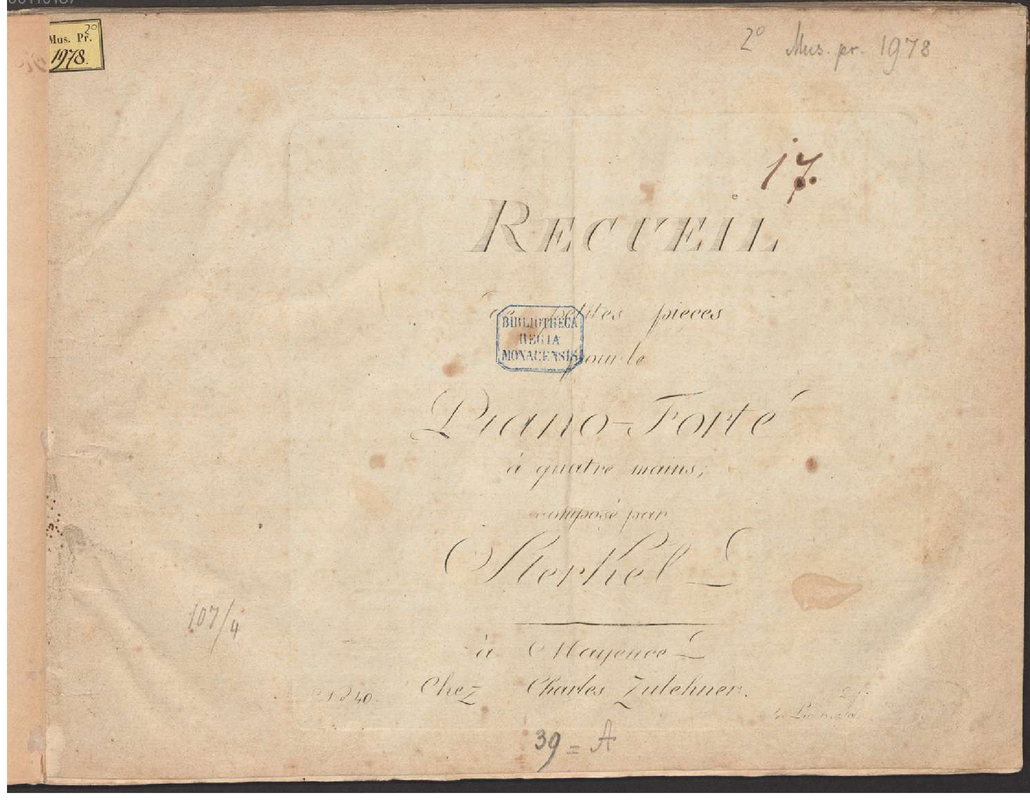 Mus. Pr.
2°
1978.
2° Mus. pr. 1978
17.
RECUEIL
de petites pieces
BIBLIOTHECA
REGIA
MONACENSIS
pour le
Piano-Forté
à quatre mains,
composé par
Sterkel
107/4
à Mayence
Chez Charles Zulehner.
39 = A